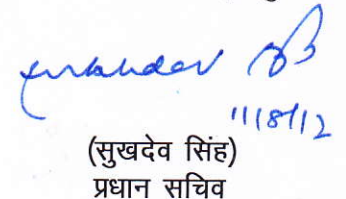 11/8/12
(सुखदेव सिंह)
प्रधान सचिव